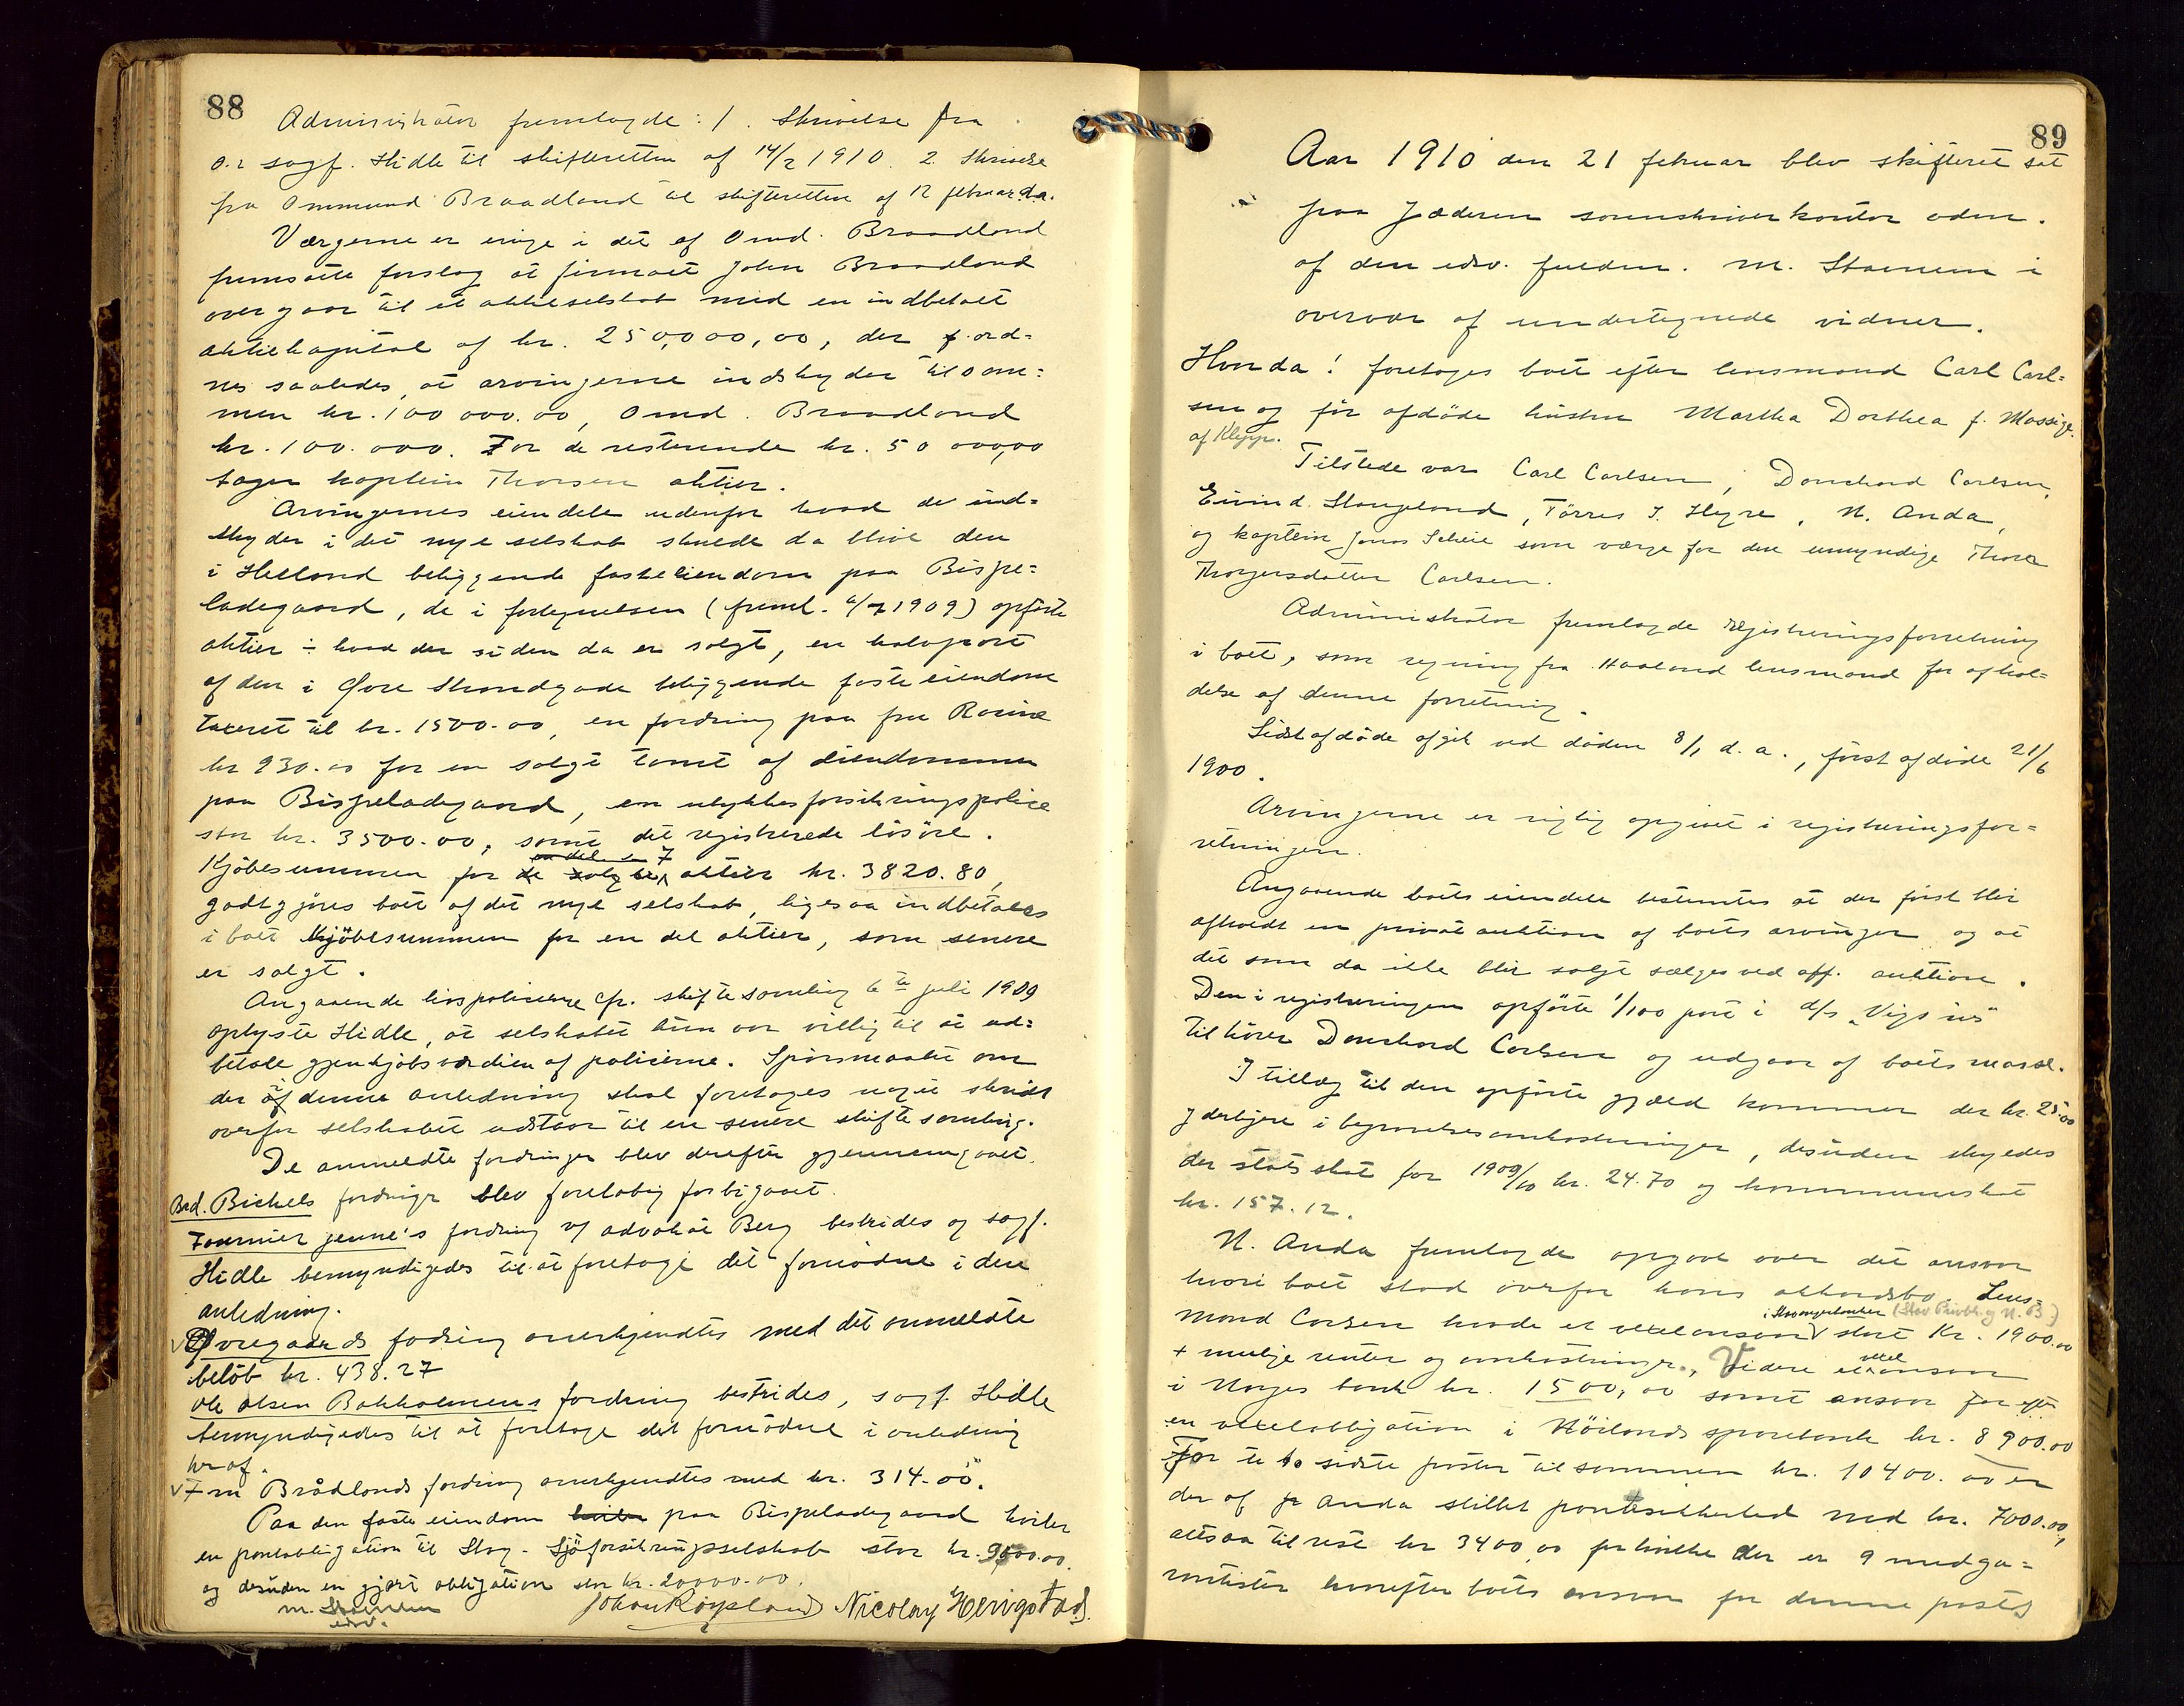 88
Administrator fremlagde: 1. Skrivelse fra
o.r sagf. Hidle til skifteretten af 14/2 1910. 2. Skrivelse
fra Ommund Braadland til skifteretten af 12 februar d.a.
Værgerne er enige i det af Omd. Braadland
fremsatte forslag at firmaet John Braadland
overgaar til et aktieselskab med en indbetalt
aktiekapital af kr. 250,000,00, der f. ord=
nes saaledes, at arvingerne indskyder tilsam=
men kr. 100 000.00, Omd. Braadland
kr. 100.000. For de resterende kr. 50 000,00
tager kaptein Thorsen aktier.
Arvingernes eiendele udenfor hvad de ind=
skyder i det nye selskab skulde da blive den
i Hetland beliggende faste eiendom paa Bispe=
ladegaard, de i fortegnelsen (freml. 6/7 1909) opførte
aktier ÷ hvad der siden da er solgt, en halvpart
af den i Øvre Strandgade beliggende faste eiendom
taxeret til kr. 1500.00, en fordring paa fru Rosine
kr 930.00 for en solgt tomt af eiendommen
paa Bispeladegaard, en ulykkesforsikringspolice
stor kr. 3500.00, samt det registrerede løsøre.
en del 7
Kjøbesummen for de solgte aktier kr. 3820.80,
godtgjøres boet af det nye selskab, ligesaa indbetales
i boet kjøbesummen for en del aktier, som senere
er solgt.
Angaaende livspolicerne cfr. skiftesamling 6te juli 1909
oplyste Hidle, at selskabet kun var villig til at ud=
betale gjenkjøbsværdien af policerne. Spørsmaalet om
der i denne anledning skal foretages noget skridt
overfor selskabet udstaar til en senere skiftesamling.
De anmeldte fordringer blev derefter gjennemgaaet.
Brd. Bickels fordringr blev foreløbig forbigaaet.
Fournier jeune's fordring v/ advokat Berg bestrides og sagf.
Hidle bemyndigedes til at foretage det fornødne i den
anledning.
√ Øvregaards fodring anerkjendtes med det anmeldte
beløb kr. 438.27
Ole Olsen Bakholmens fordring bestrides, sagf. Hidle
bemyndigedes til at foretage det fornødne i anledning
heraf.
√ Fru Brådlands fordring anerkjendtes med kr. 314.00.
Paa den faste eiendom hviler paa Bispeladegaard hviler
en panteobligation til Stav. Sjøforsikringsselskab stor kr. 9000.00.
og desuden en gjort obligation stor kr. 20000.00.
M. Stoenem Johan Røysland Nicolay Heringstad.
edsv.
89
Aar 1910 den 21 februar blev skifteret sat
paa Jæderen sorenskriverkontor adm.
af den edsv. fuldm. M. Stoenem i
overvær af undertegnede vidner.
Hvorda! foretoges boet efter lensmand Carl Carl=
sen og før afdøde hustru Martha Dorthea f. Mossige.
af Klepp.
Tilstede var Carl Carlsen, Danchard Carlsen,
Eivind Stangeland, Tørres J. Hegre, N. Anda,
og kaptein Jonas Scheie som værge for den umyndige Thora
Thorgersdatter Carlsen.
Administrator fremlagde registreringsforretning
i boet, som regning fra Haaland lensmand for afhol=
delse af denne forretning.
Sidst afdøde afgik ved døden 8/1 d. a., først afdøde 21/6
1900.
Arvingerne er rigtig opgivet i registreringsfor=
retningen.
Angaaende boets eiendele bestemtes at der først blir
afholdt en privat auktion af boets arvinger og at
det som da ikke blir solgt sælges ved off. auktion.
Den i registreringen opførte 1/100 part i d/s „Vigsnes"
tilhører Danchard Carlsen og udgaar af boets masse.
I tillæg til den opførte gjæld kommer der kr. 25.00
yderligere i begravelsesomkostninger, desuden skyldes
der statsskat for 1909/10 kr. 24.70 og kommuneskat
kr. 157.12.
N. Anda fremlagde opgave over det ansvar
hvori boet stod overfor hans akkordbo. Lens=
i Stavangerbanken (Stav. Privbk. og N. B.)
mand Carlsen havde et vexelansvar √ stort kr. 1900.00
+ mulige renter og omkostninger. Videre et vexel ansvar
i Norges bank kr. 1500,00 samt ansvar for efter
en vexelobligation i Høilands sparebank kr. 8900.00
For de to sidste poster tilsammen kr. 10400.00 er
der af Anda stillet pantesikkerhed med kr. 7000.00,
altsaa til rest kr 3400,00 for hvilke der er 9 medga=
rantister hvorefter boets ansvar for denne post